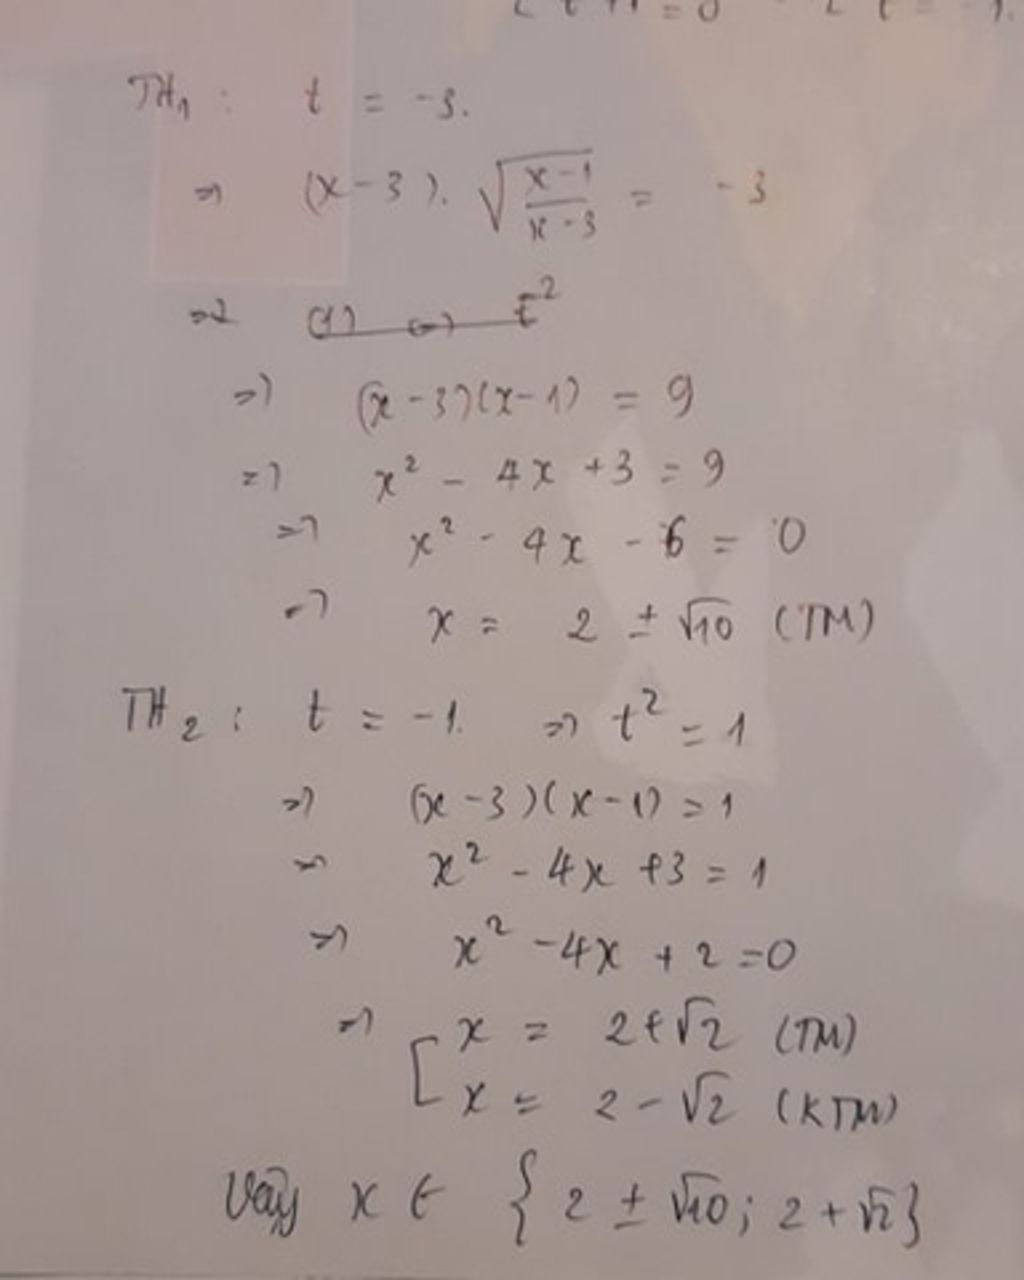 TH₁ : t = -3.
=> (x-3). √((x-1)/(x-3)) = -3
=> (1) <=> t²
=> (x-3)(x-1) = 9
=> x² - 4x + 3 = 9
=> x² - 4x - 6 = 0
=> x = 2 ± √10 (TM)
TH₂ : t = -1. => t² = 1
=> (x-3)(x-1) = 1
=> x² - 4x + 3 = 1
=> x² - 4x + 2 = 0
=> [ x = 2 + √2 (TM)
x = 2 - √2 (KTM)
Vậy x ∈ { 2 ± √10; 2 + √2 }